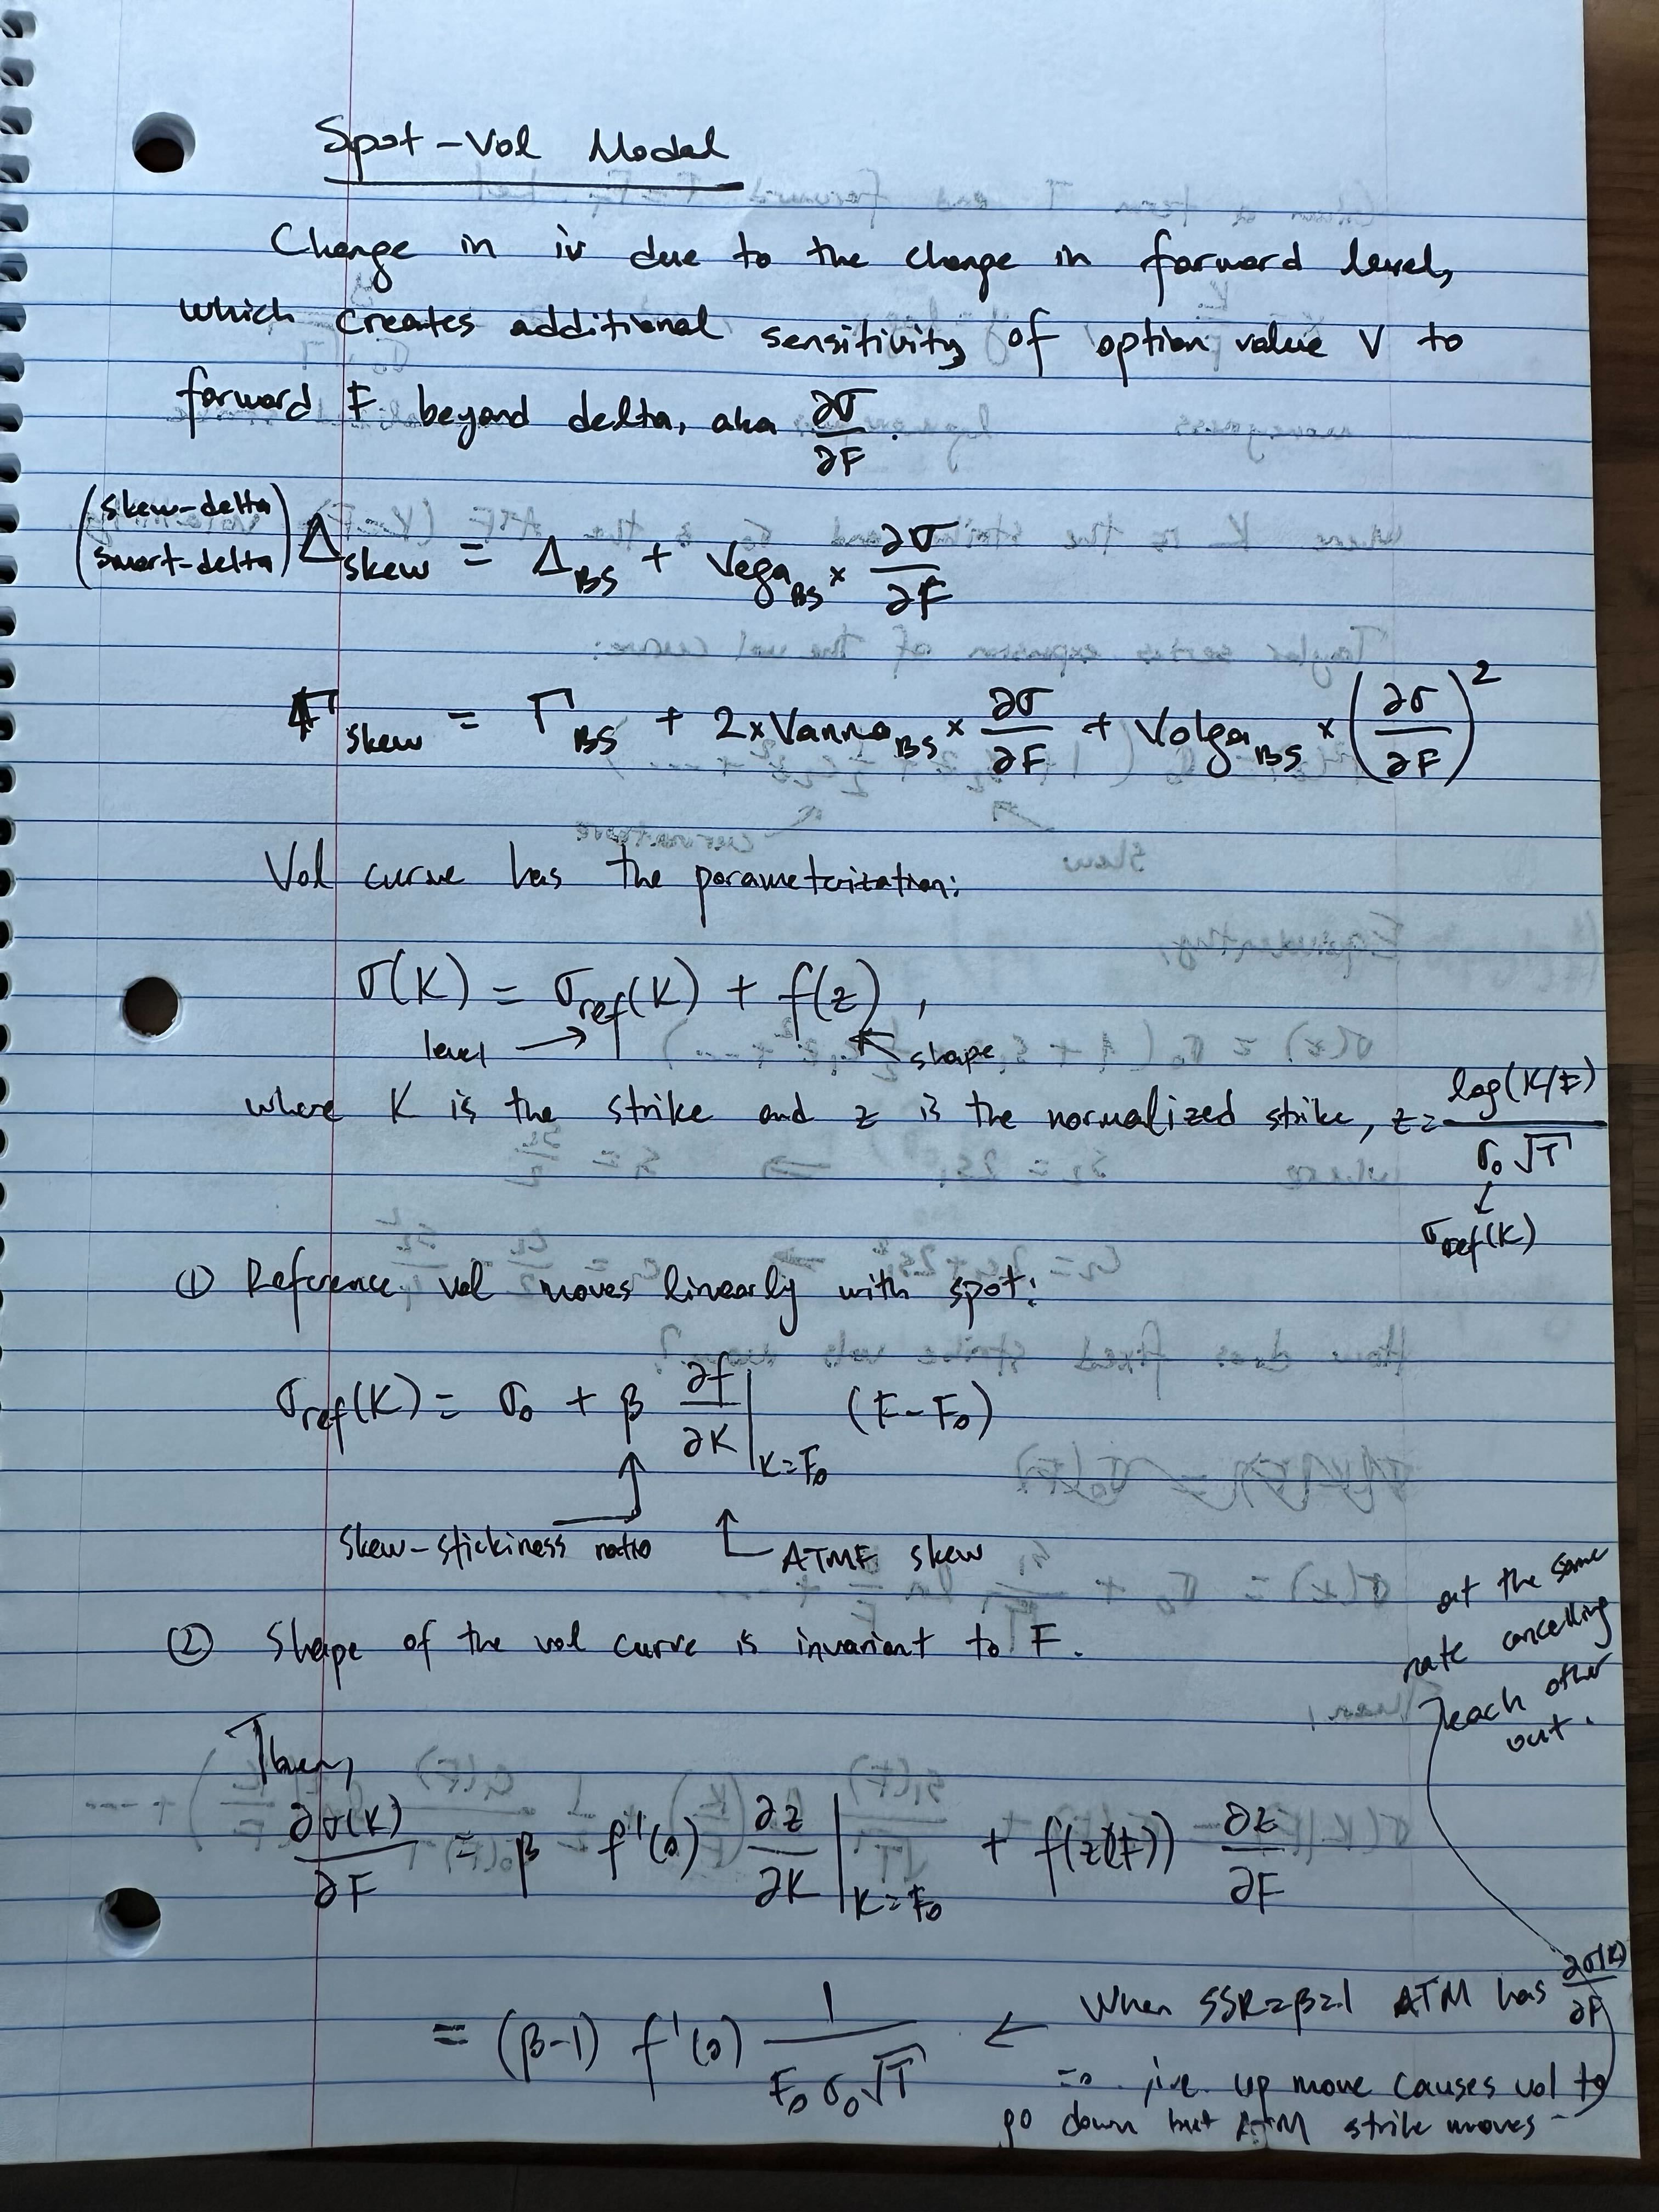 Spot-Vol Model
Change in iv due to the change in forward level,
which creates additional sensitivity of option value V to
forward F beyond delta, aka ∂σ/∂F.
(skew-delta
smart-delta) Δ_skew = Δ_BS + Vega_BS × ∂σ/∂F
Γ_skew = Γ_BS + 2×Vanna_BS × ∂σ/∂F + Volga_BS × (∂σ/∂F)²
Vol curve has the parameterization:
σ(K) = σ_ref(K) + f(z),
level → ← shape
where K is the strike and z is the normalized strike, z = log(K/F) / σ₀√T
↓
σ_ref(K)
① Reference vol moves linearly with spot:
σ_ref(K) = σ₀ + β ∂f/∂K |_K=F₀ (F-F₀)
skew-stickiness ratio ↑ ATMF skew
② Shape of the vol curve is invariant to F.
Then,
∂σ(K)/∂F = β f'(0) ∂z/∂K |_K=F₀ + f(z(F)) ∂z/∂F
= (β-1) f'(0) 1/(F₀σ₀√T) ← When SSR=β=1 ATM has ∂σ(K)/∂F
=0. i.e. up move causes vol to
go down but ATM strike moves
at the same
rate cancelling
each other
out.